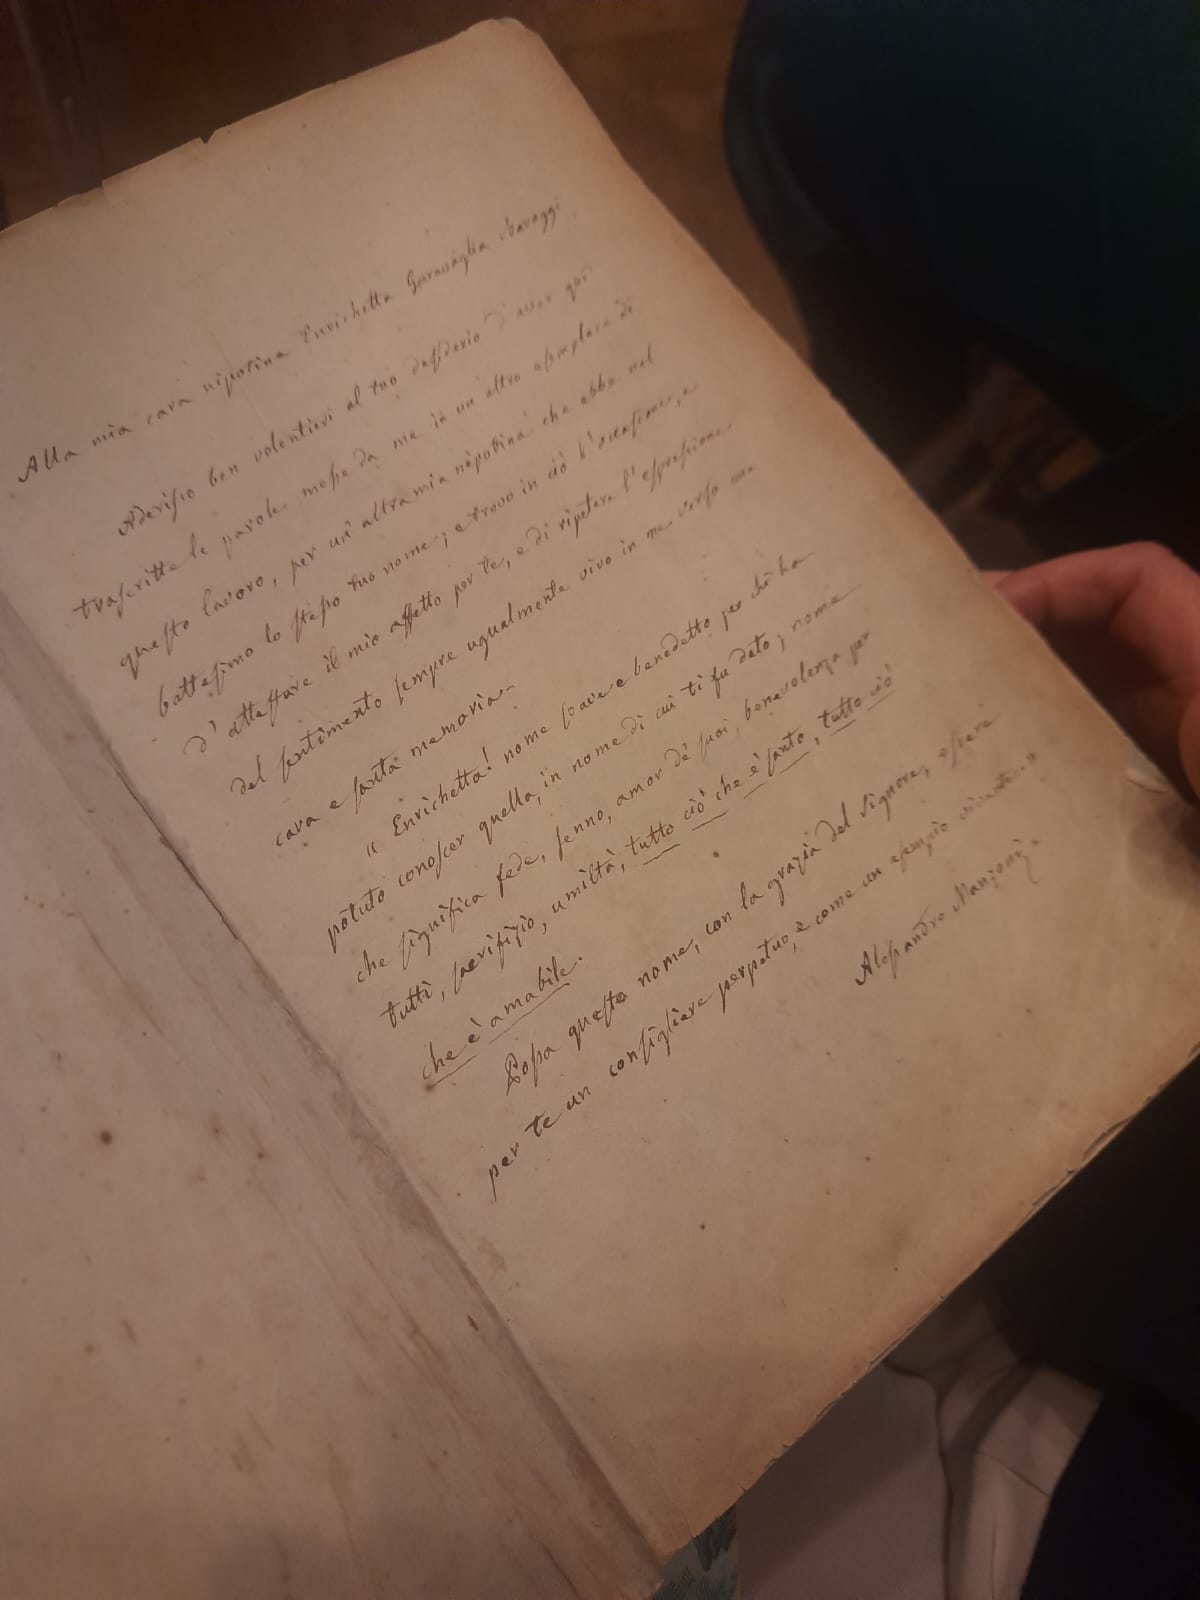 Alla mia cara nipotina Enrichetta Garavaglia Baroggi
Aderisco ben volentieri al tuo desiderio d'aver qui
trascritte le parole messe da me in un altro esemplare di
questo lavoro, per un'altra mia nipotina che ebbe nel
battesimo lo stesso tuo nome; e trovo in ciò l'occasione, e
d'attestare il mio affetto per te, e di ripetere l'espressione
del sentimento sempre ugualmente vivo in me verso una
cara e santa memoria.
"Enrichetta! nome soave e benedetto per chi ha
potuto conoscer quella, in nome di cui ti fu dato; nome
che significa fede, senno, amor de' suoi, benevolenza per
tutti, sacrifizio, umiltà, tutto ciò che è santo, tutto ciò
che è amabile.
Possa questo nome, con la grazia del Signore, essere
per te un consigliere perpetuo, e come un esempio vivente."
Alessandro Manzoni.